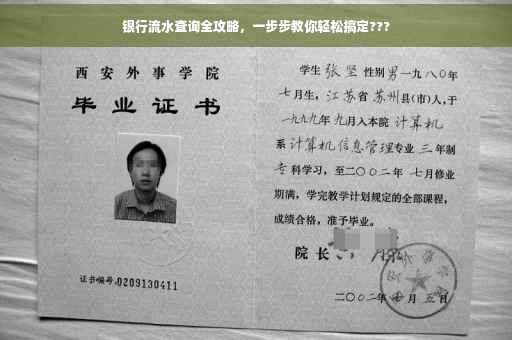 银行流水查询全攻略，一步步教你轻松搞定???
西安外事学院
毕业证书
证书编号:0209130411
学生 张坚 性别男一九八〇年
七月生，江苏省苏州县(市)人,于
一九九九年九月入本院 计算机
系计算机信息管理专业 三 年制
专科学习，至二〇〇二年 七月修业
期满，学完教学计划规定的全部课程，
成绩合格，准予毕业。
院长
二〇〇二年 月五日